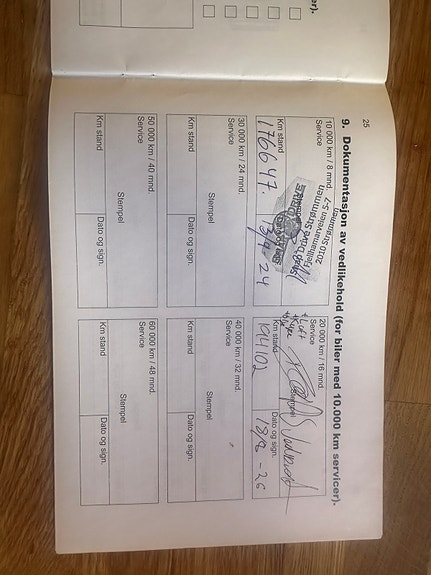 er).
25
9. Dokumentasjon av vedlikehold (for biler med 10.000 km servicer).
10 000 km / 8 mnd.
Service
Drive Strømmen
Fjellhamarveien 5-7
2010 Strømmen
DRIVE
Km stand
176647.
13/9-24
20 000 km / 16 mnd.
Service
+ Luft
Stempel
Km stand
Dato og sign.
194102
30 000 km / 24 mnd.
Service
Stempel
Km stand
Dato og sign.
40 000 km / 32 mnd.
Service
Stempel
Km stand
Dato og sign.
50 000 km / 40 mnd.
Service
Stempel
Km stand
Dato og sign.
60 000 km / 48 mnd.
Service
Stempel
Km stand
Dato og sign.